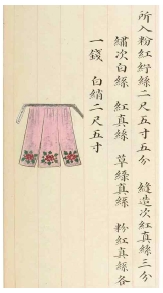 所入粉紅紵絲二尺五寸五分 縫造次紅真絲三分
繡次白絲 紅真絲 草綠真絲 粉紅真絲各
一錢 白綃二尺五寸